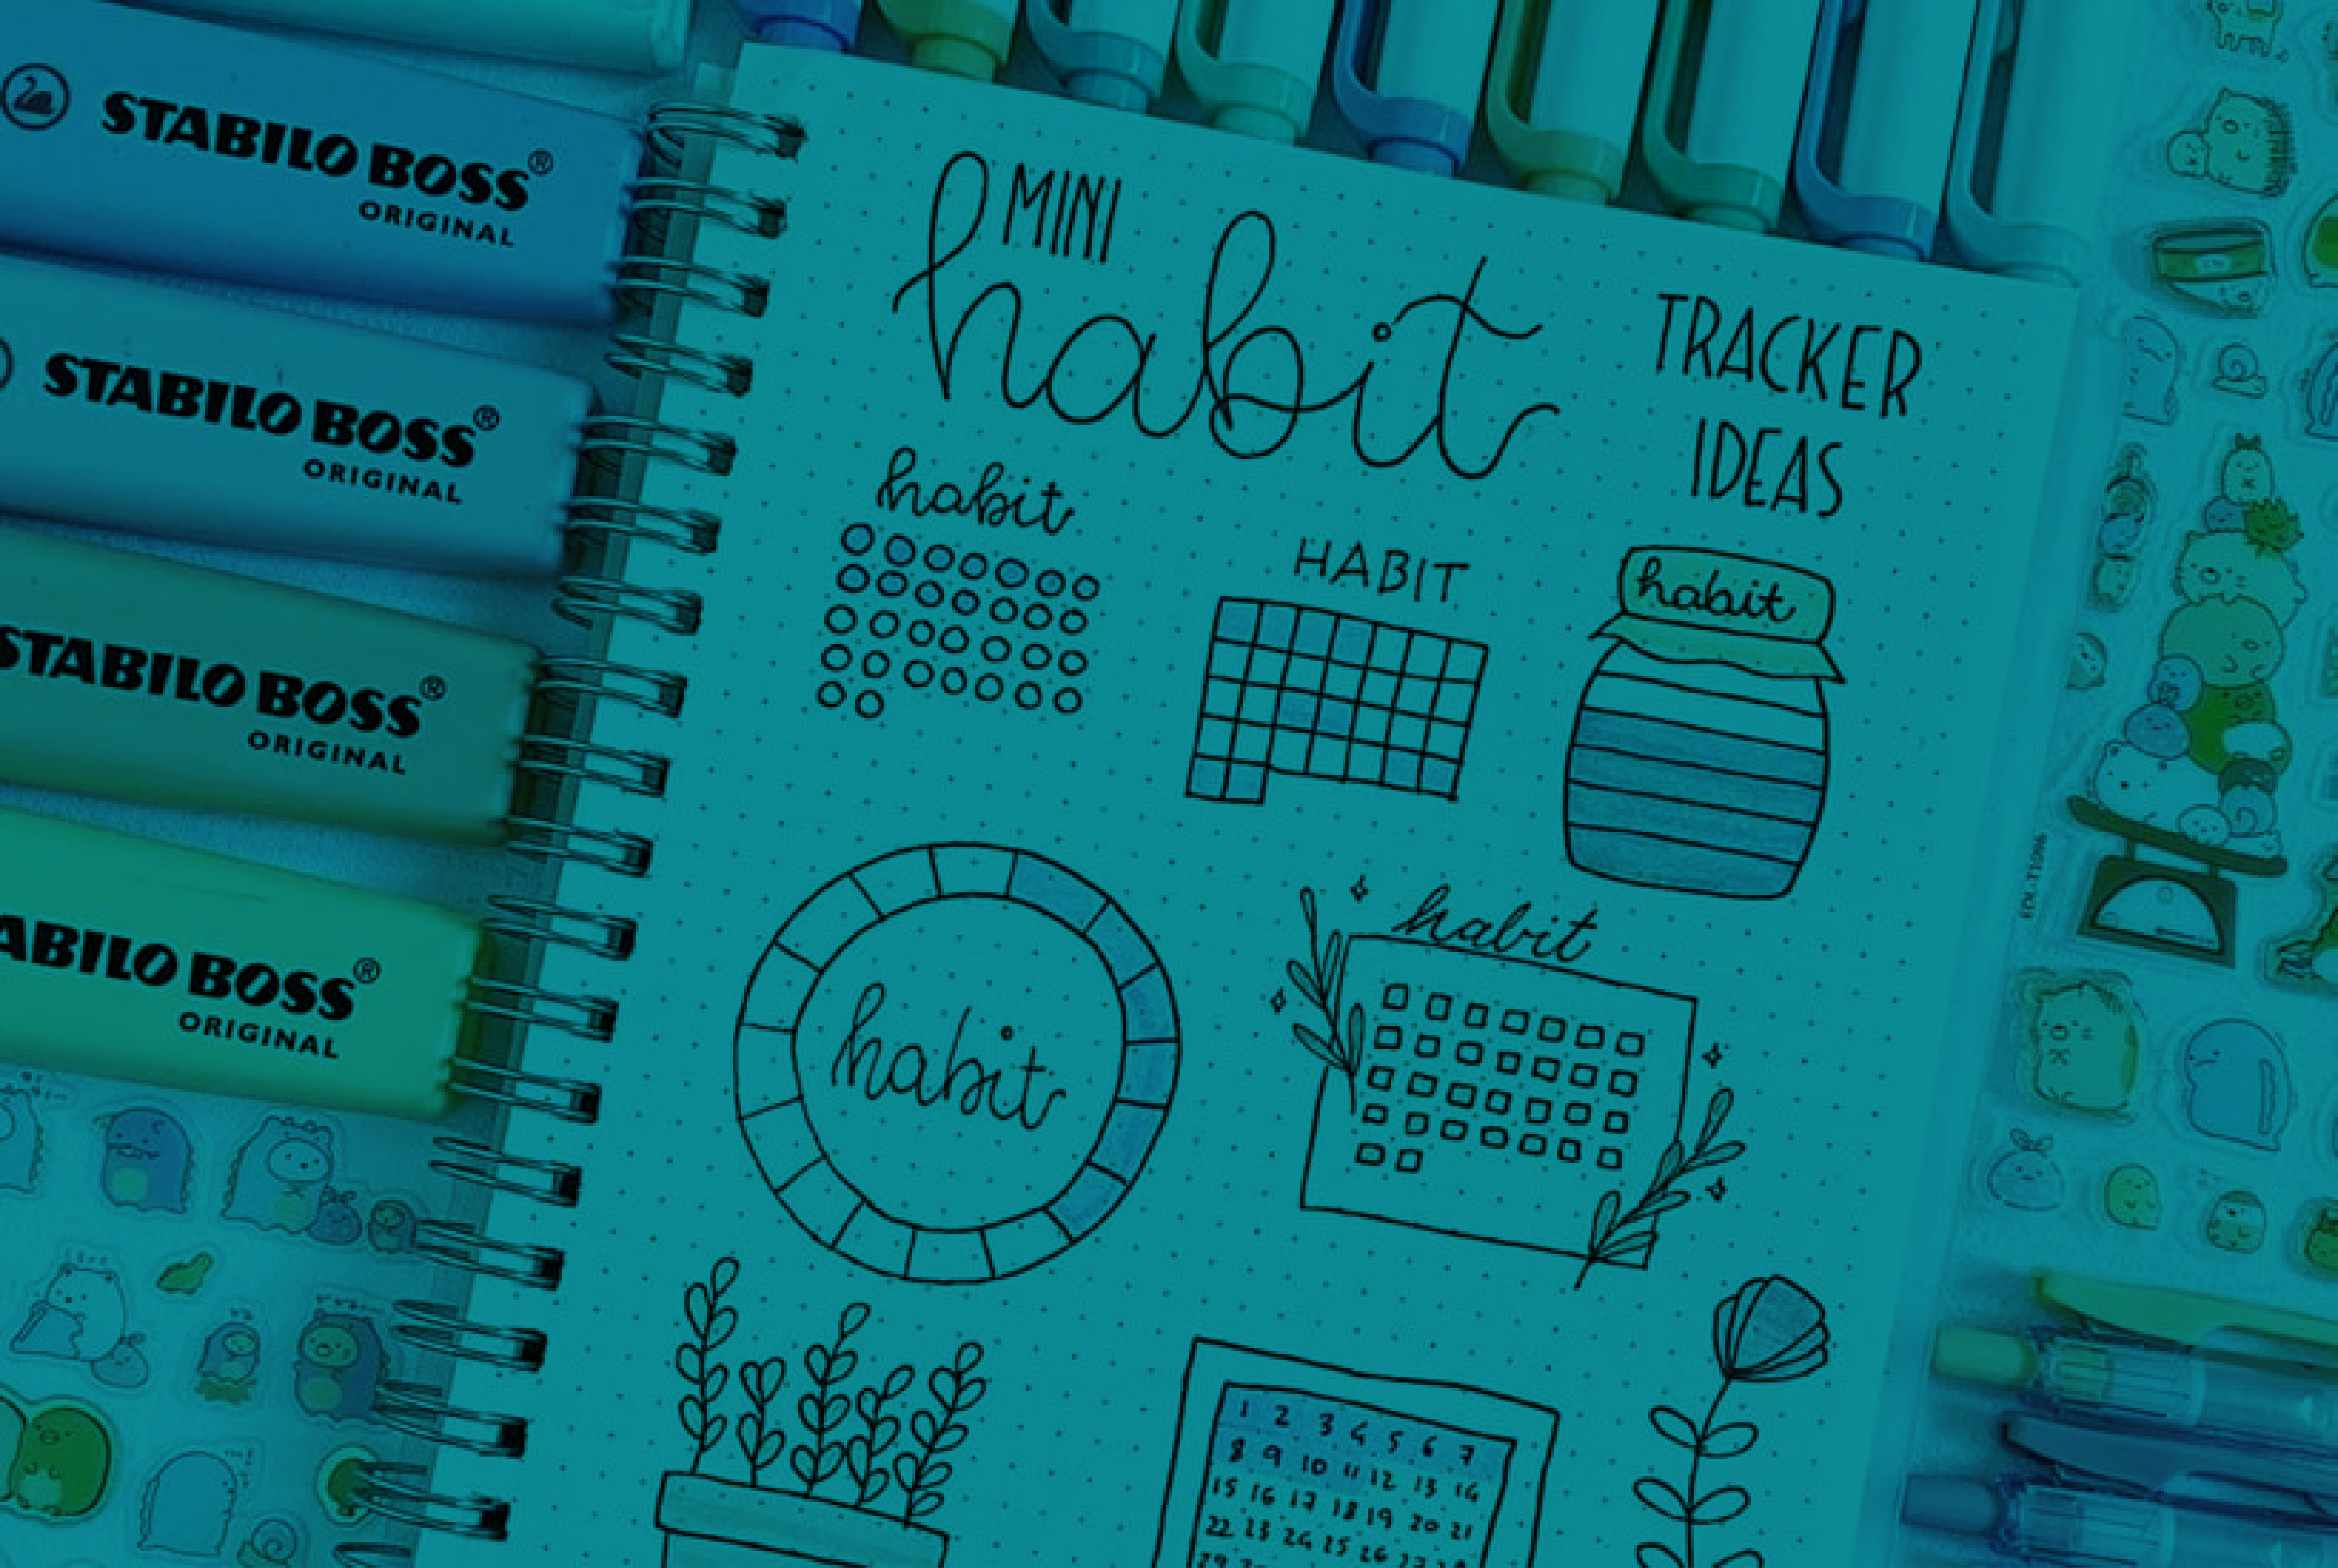 STABILO BOSS®
ORIGINAL
STABILO BOSS®
ORIGINAL
STABILO BOSS®
ORIGINAL
ABILO BOSS®
ORIGINAL
MINI
habit
TRACKER
IDEAS
habit
HABIT
habit
habit
habit
1 2 3 4 5 6 7
8 9 10 11 12 13 14
15 16 17 18 19 20 21
22 23 24 25 26 27 28